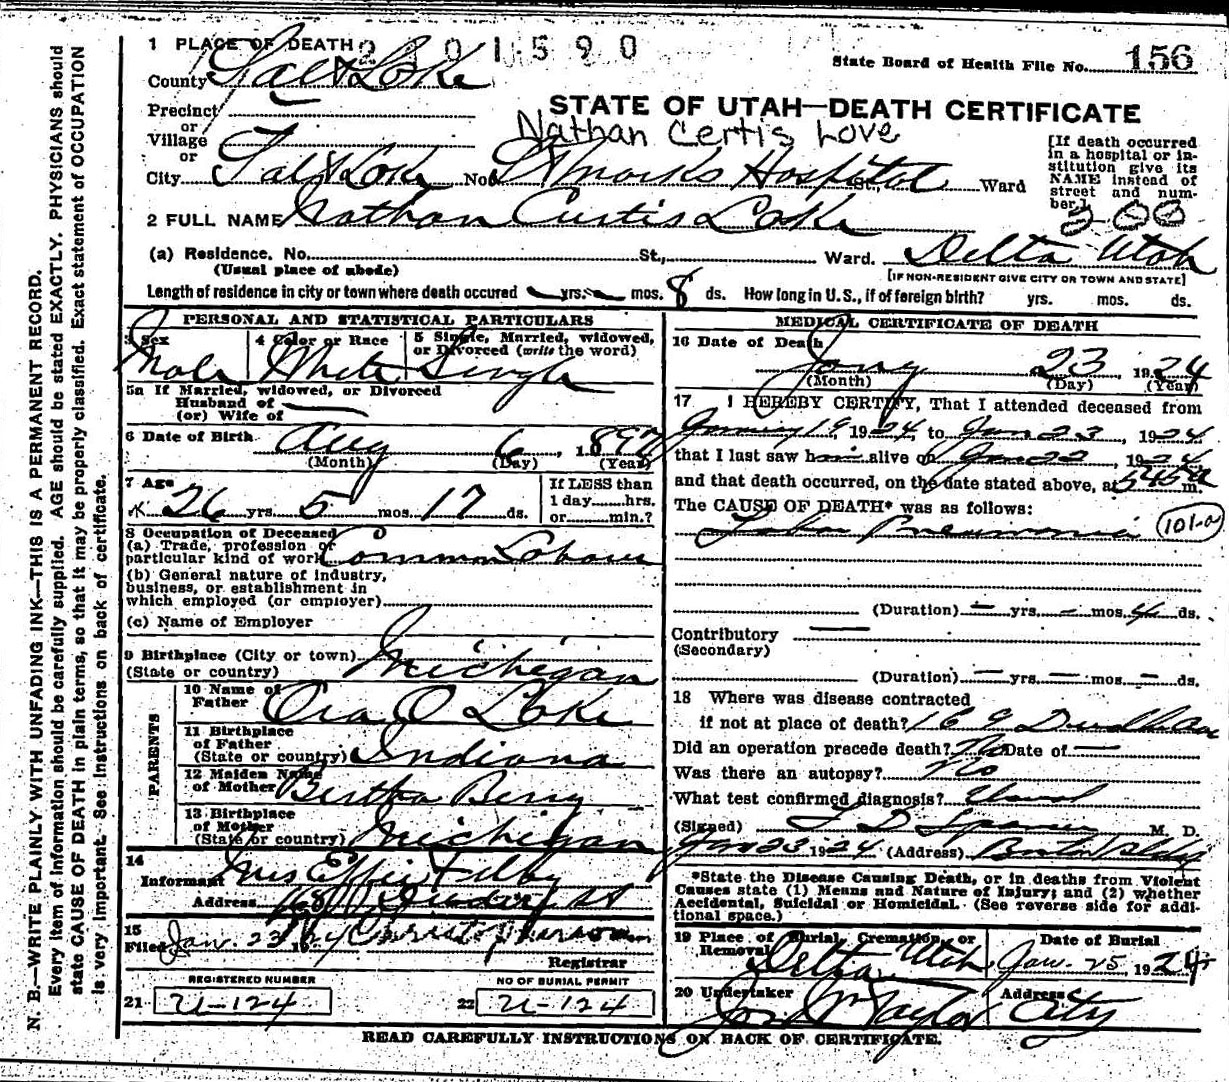 1 PLACE OF DEATH 2401590
State Board of Health File No. 156
County Salt Lake
STATE OF UTAH—DEATH CERTIFICATE
Precinct
or
Nathan Certis Love
Village
or
City Salt Lake No. St Marks Hospital St., Ward
[If death occurred
in a hospital or in-
stitution give its
NAME instead of
street and num-
ber.]
2 FULL NAME Nathan Curtis Lake
(a) Residence. No. St., Ward. Delta Utah
(Usual place of abode) [IF NON-RESIDENT GIVE CITY OR TOWN AND STATE]
Length of residence in city or town where death occured yrs. mos. 8 ds. How long in U. S., if of foreign birth? yrs. mos. ds.
PERSONAL AND STATISTICAL PARTICULARS
3 Sex 4 Color or Race 5 Single, Married, widowed,
or Divorced (write the word)
Male White Single
5a If Married, widowed, or Divorced
Husband of
(or) Wife of
6 Date of Birth Aug 6, 1897
(Month) (Day) (Year)
7 Age 26 yrs. 5 mos. 17 ds.
If LESS than
1 day hrs.
or min.?
8 Occupation of Deceased
(a) Trade, profession or
particular kind of work Common Laborer
(b) General nature of industry,
business, or establishment in
which employed (or employer)
(c) Name of Employer
9 Birthplace (City or town)
(State or country) Michigan
PARENTS
10 Name of
Father Ora O Lake
11 Birthplace
of Father
(State or country) Indiana
12 Maiden Name
of Mother Bertha Berry
13 Birthplace
of Mother
(State or country) Michigan
14
Informant Mrs Effie
Address St
15
Filed Jan. 23 1924
Registrar
REGISTERED NUMBER NO OF BURIAL PERMIT
21 U-124 22 U-124
MEDICAL CERTIFICATE OF DEATH
16 Date of Death
Jany 23, 1924
(Month) (Day) (Year)
17 I HEREBY CERTIFY, That I attended deceased from
January 19, 1924, to Jan 23, 1924
that I last saw him alive on Jan 22, 1924
and that death occurred, on the date stated above, at 545 a m.
The CAUSE OF DEATH* was as follows:
Lobar Pneumonia 101-a
(Duration) — yrs. — mos. 4 ds.
Contributory
(Secondary)
(Duration) — yrs. — mos. — ds.
18 Where was disease contracted
if not at place of death?
Did an operation precede death? No Date of —
Was there an autopsy? No
What test confirmed diagnosis? Usual
(Signed) M. D.
Jan 23 1924 (Address)
*State the Disease Causing Death, or in deaths from Violent
Causes state (1) Means and Nature of Injury; and (2) whether
Accidental, Suicidal or Homicidal. (See reverse side for addi-
tional space.)
19 Place of Burial, Cremation, or
Removal Delta Utah
Date of Burial
Jan. 25, 1924
20 Undertaker Address
Taylor City
READ CAREFULLY INSTRUCTIONS ON BACK OF CERTIFICATE.
N. B.—WRITE PLAINLY WITH UNFADING INK—THIS IS A PERMANENT RECORD.
Every item of information should be carefully supplied. AGE should be stated EXACTLY. PHYSICIANS should
state CAUSE OF DEATH in plain terms, so that it may be properly classified. Exact statement of OCCUPATION
is very important. See instructions on back of certificate.